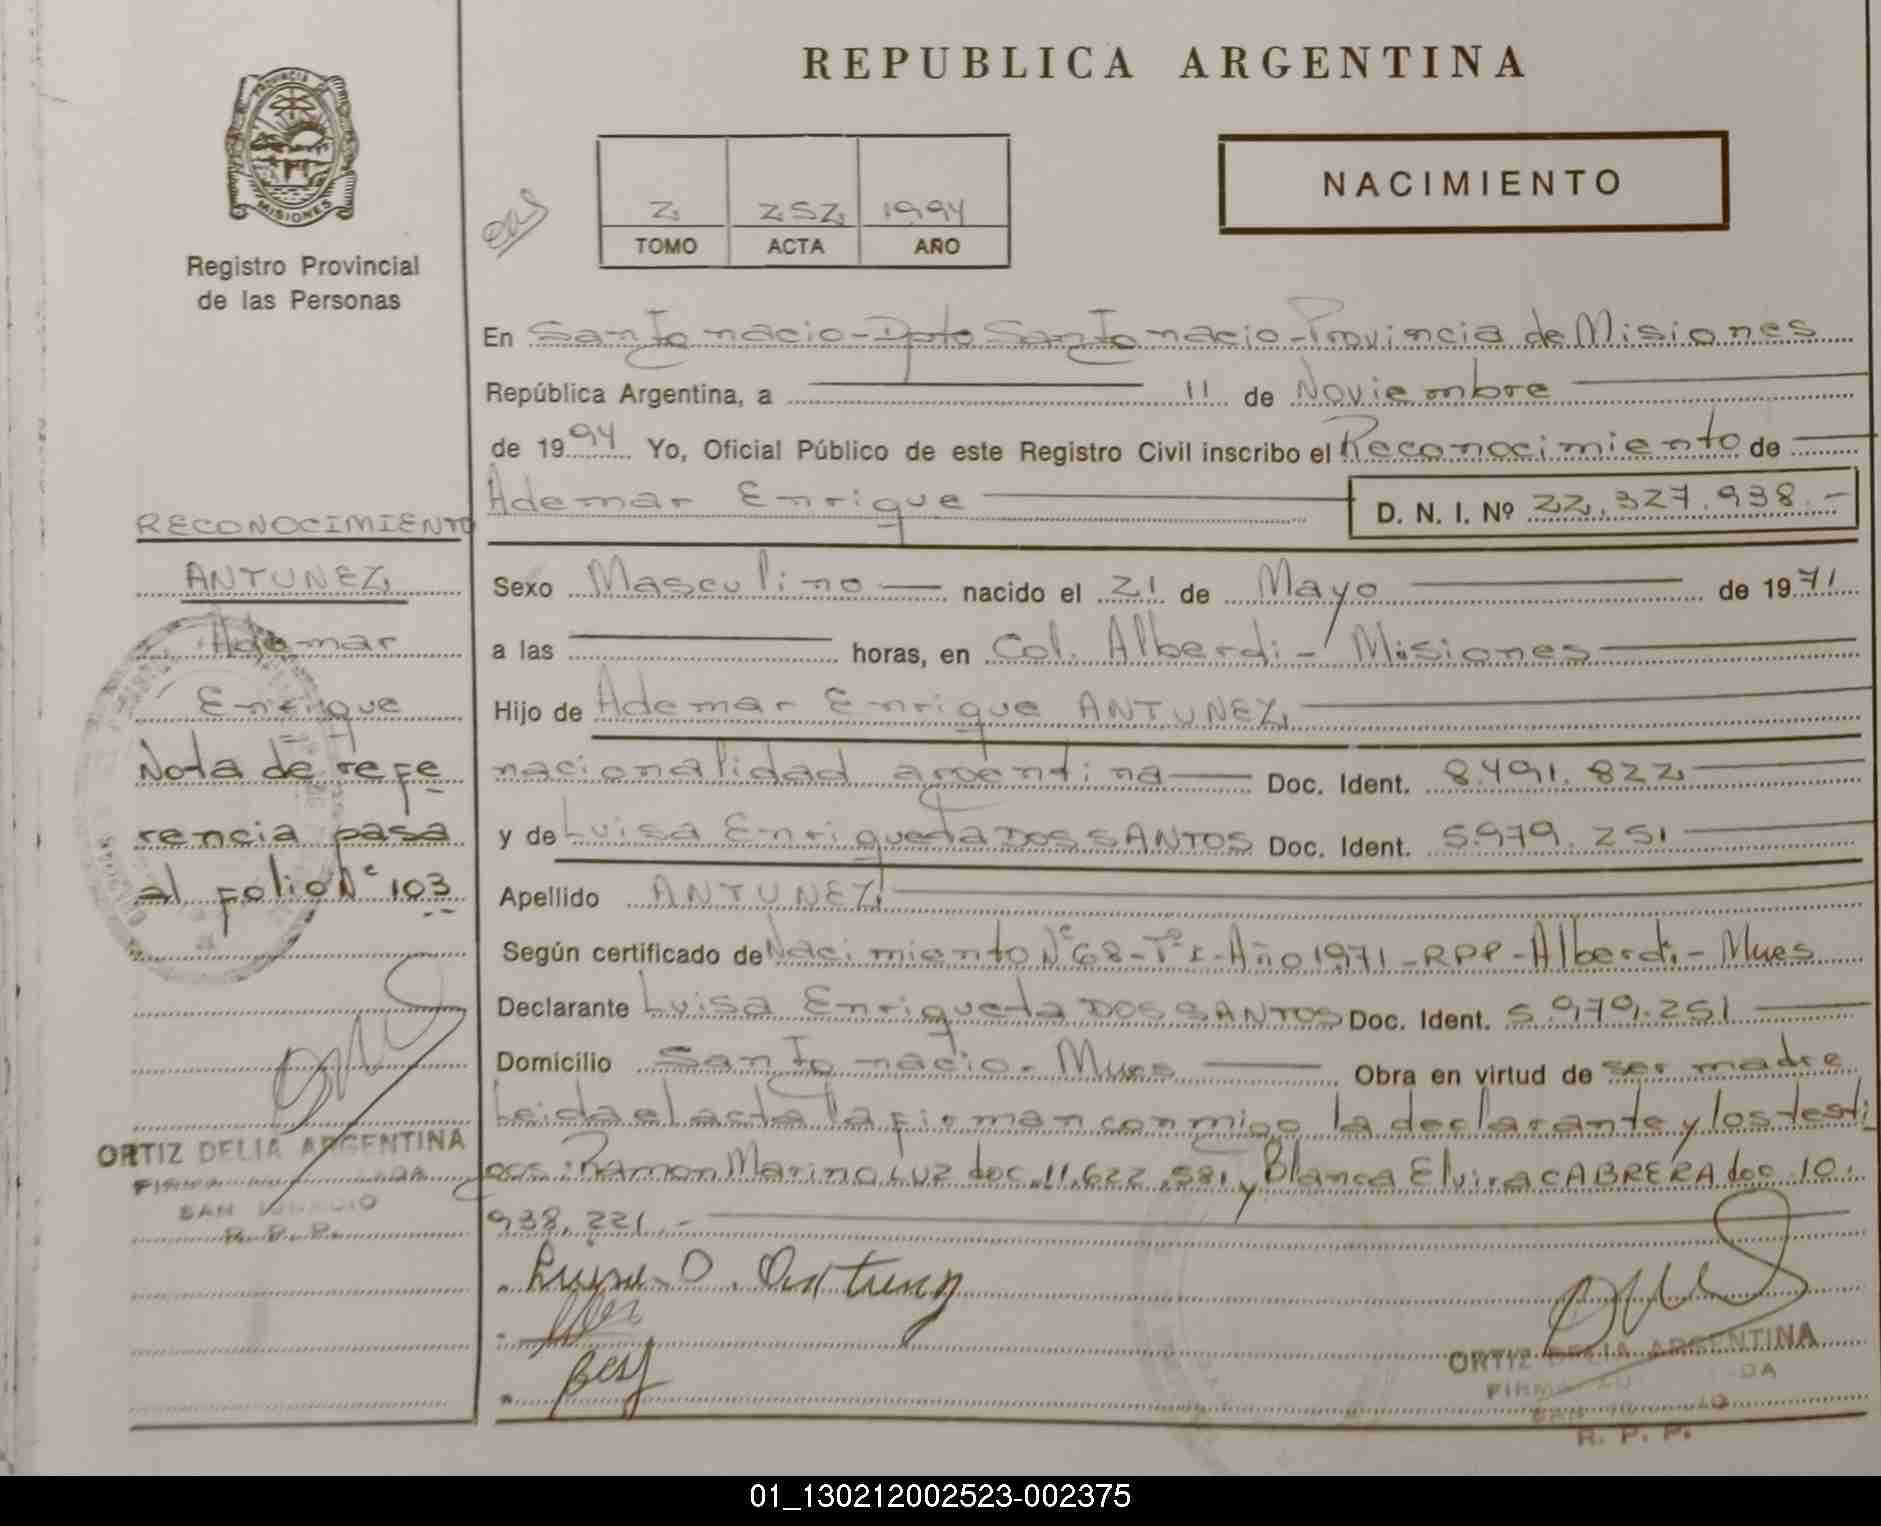 REPUBLICA ARGENTINA
PROVINCIA DE
MISIONES
Registro Provincial
de las Personas
NACIMIENTO
2 252 1994
TOMO ACTA AÑO
En San Ignacio - Dpto San Ignacio - Provincia de Misiones
República Argentina, a 11 de Noviembre
de 1994 Yo, Oficial Público de este Registro Civil inscribo el Reconocimiento de
Ademar Enrique D. N. I. Nº 22.327.938.-
Sexo Masculino nacido el 21 de Mayo de 1971
a las horas, en Col. Alberdi - Misiones
Hijo de Ademar Enrique ANTUNEZ
nacionalidad argentina Doc. Ident. 8.491.822
y de Luisa Enriqueta DOS SANTOS Doc. Ident. 5.979.251
Apellido ANTUNEZ
Según certificado de Nacimiento Nº 68 - Tº I - Año 1971 - RPP - Alberdi - Mnes
Declarante Luisa Enriqueta DOS SANTOS Doc. Ident. 5.979.251
Domicilio San Ignacio - Mnes Obra en virtud de ser madre
Leida el acta la firman conmigo la declarante y los testi
gos: Ramon Marino LUZ doc. 11.622.581 y Blanca Elvira CABRERA doc 10.
938.221.-
RECONOCIMIENTO
ANTUNEZ
Ademar
Enrique
Nota de refe
rencia pasa
al folio Nº 103
ORTIZ DELIA ARGENTINA
FIRMA
SAN IGNACIO
R. P. P.
Luisa D. Antunez
ORTIZ DELIA ARGENTINA
FIRMA
SAN
R. P. P.
01_130212002523-002375